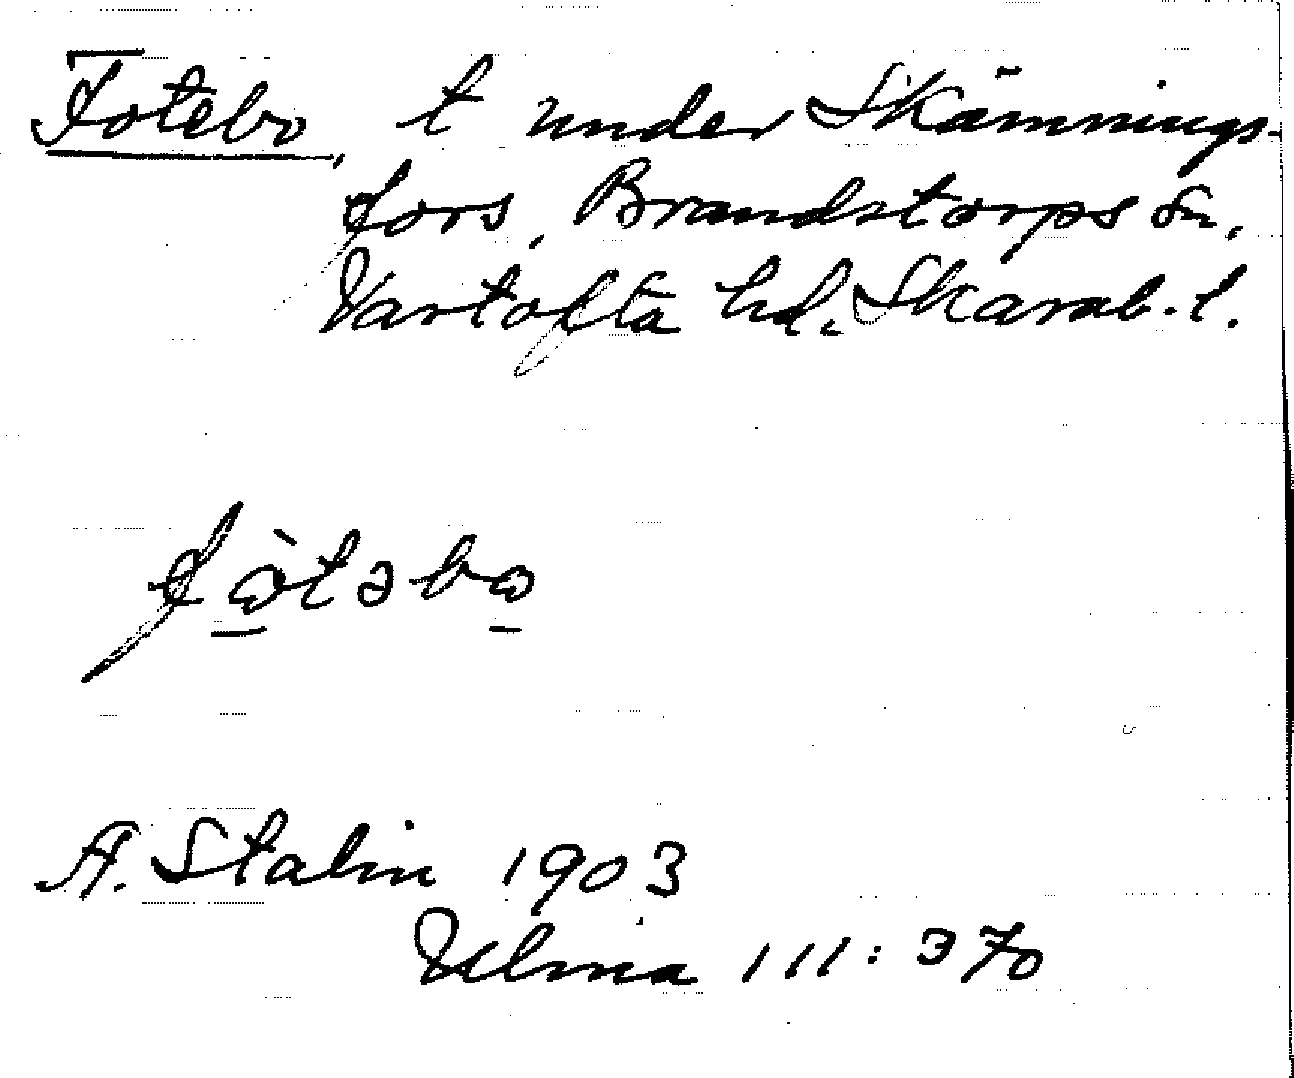 Fotebo, t under Skämnings-
fors, Brandstorps sn,
Vartofta hd, Skarab. l.
fòtəbo
A. Stalin 1903
Ulma 111:370